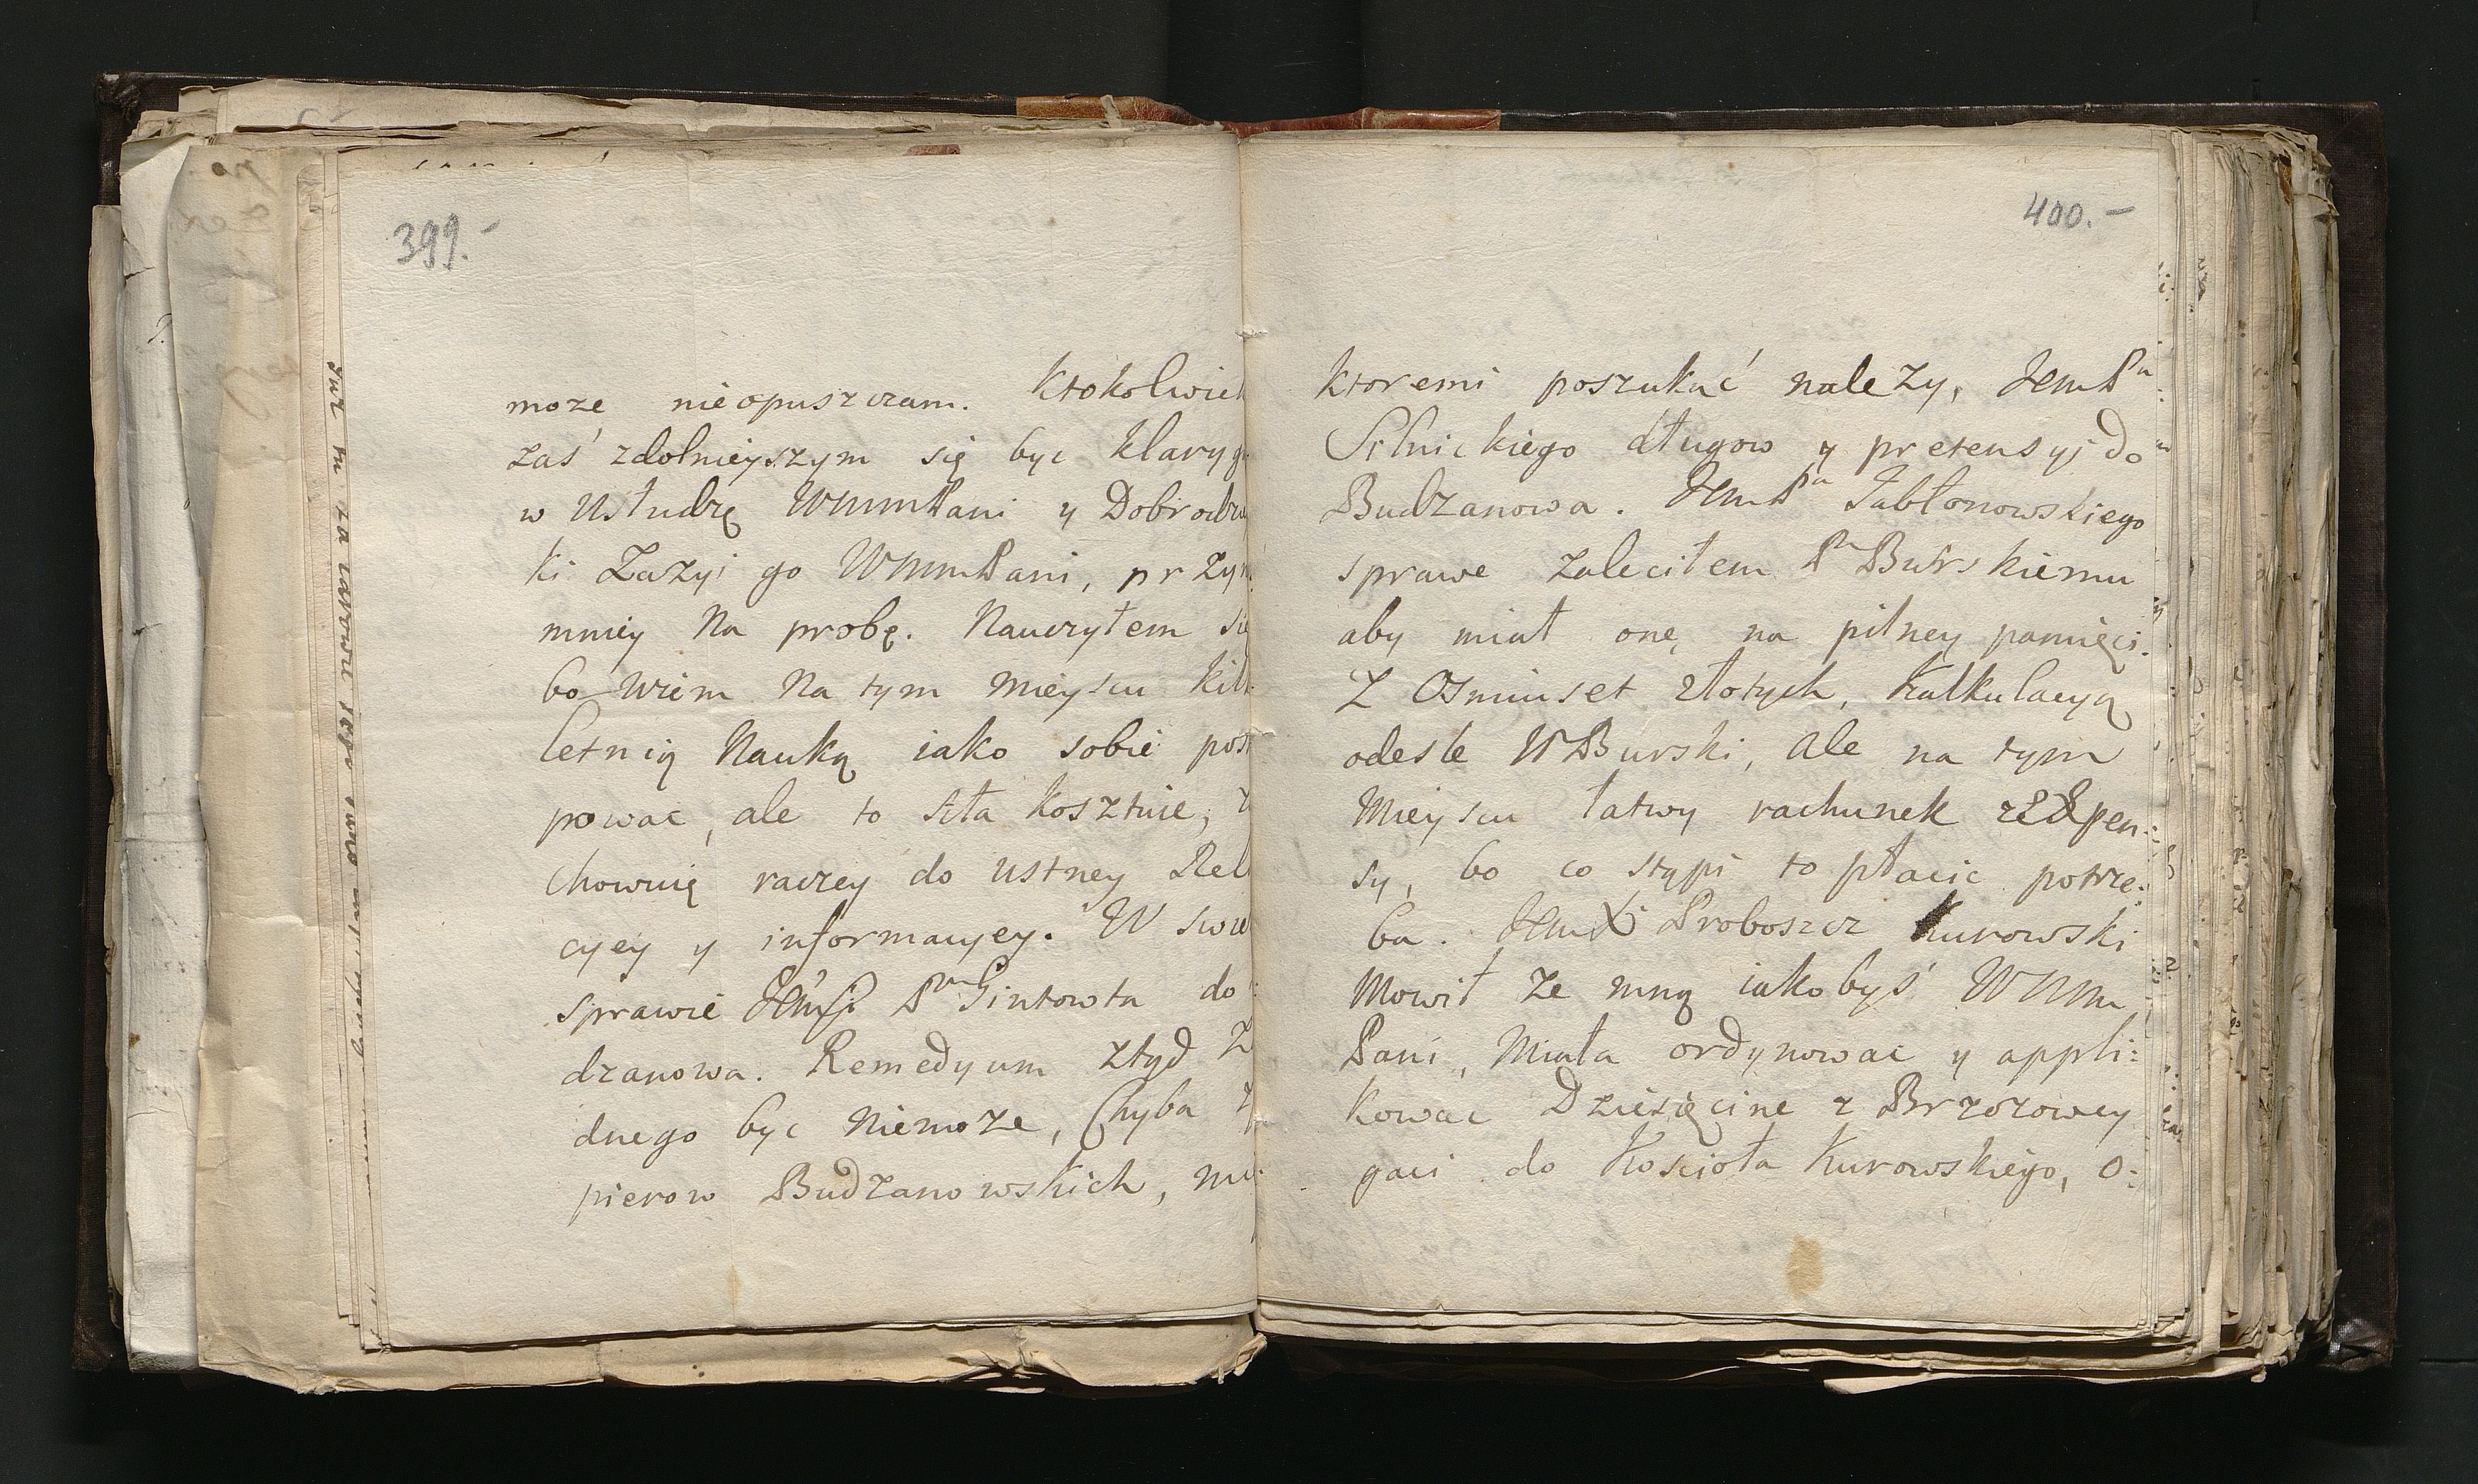 399.-
może nieopuszczam. Ktokolwiek
zaś zdolnieyszym się byc klaruje
w Usłudzę WMMPani y Dobrodzi
ki Zażyi go WMMPani, przyn
mniey Na probę. Nauczyłem się
bo wiem Na tym mieyscu kil
letnią Nauką iako sobie post
powac, ale to siła kosztuie,
chownię raczey do ustney Rel
cyey y informacyey. W swie
sprawie Gintowta do
dzanowa. Remedyum ztąd
dnego byc Niemoże, Chyba
pierow Budzanowskich,
400.-
ktoremi poszukać należy, JemPa
Silnickiego długow y pretensyj do
Budzanowa. JemPa Jabłonowskiego
sprawe zaleciłem Pu Burskiemu
aby miał onę na pilney pamięci.
Z Osmiuset złotych, Kalkulacyą
odesle WBurski, ale na tym
Mieyscu łatwy rachunek z Expen:
sy, bo co stąpi to płacic potrze:
ba. JemX Proboszcz Kurowski
Mowił ze mną iakobyś WMM
Pani, Miała ordynowac y appli:
kowac Dziesięcine z Brzozowey
gaci do Kościoła Kurowskiego, O: